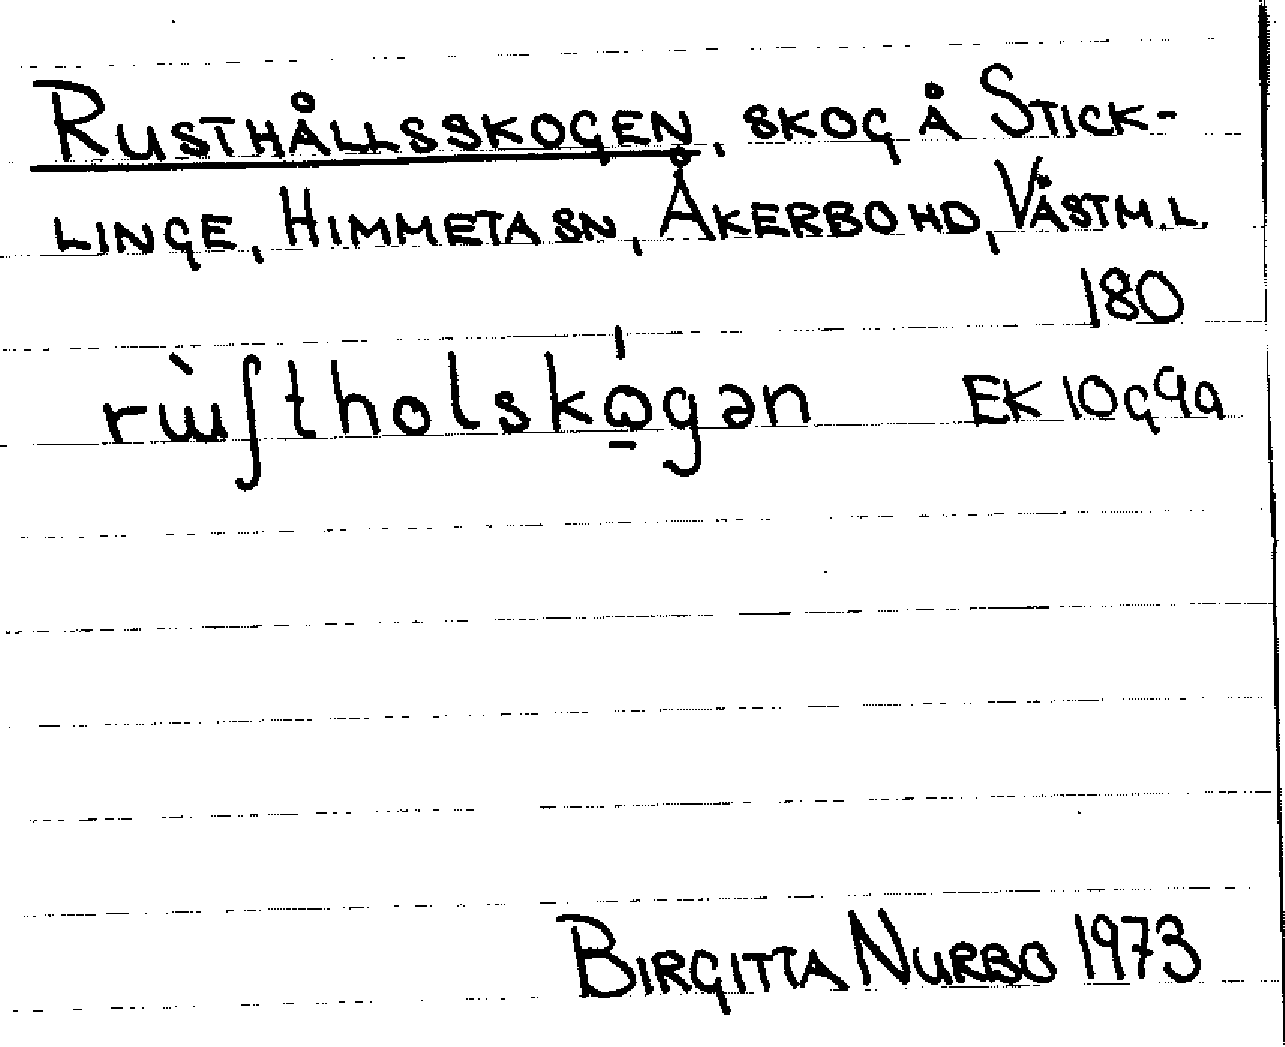 RUSTHÅLLSSKOGEN, SKOG Å STICK-
LINGE, HIMMETA SN, ÅKERBO HD, VÄSTM.L.
180
rɯ̀ʃtholskώ̱gən EK 10g9a
BIRGITTA NURBO 1973